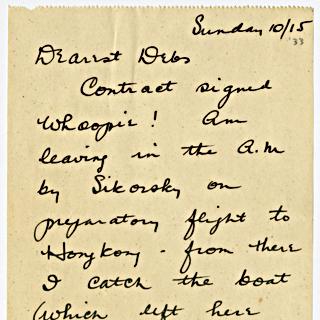 Sunday 10/15
'33
Dearest Debs
Contract signed
Whoopie! Am
leaving in the A.M
by Sikorsky on
preparatory flight to
Hongkong - from there
I catch the boat
(which left here